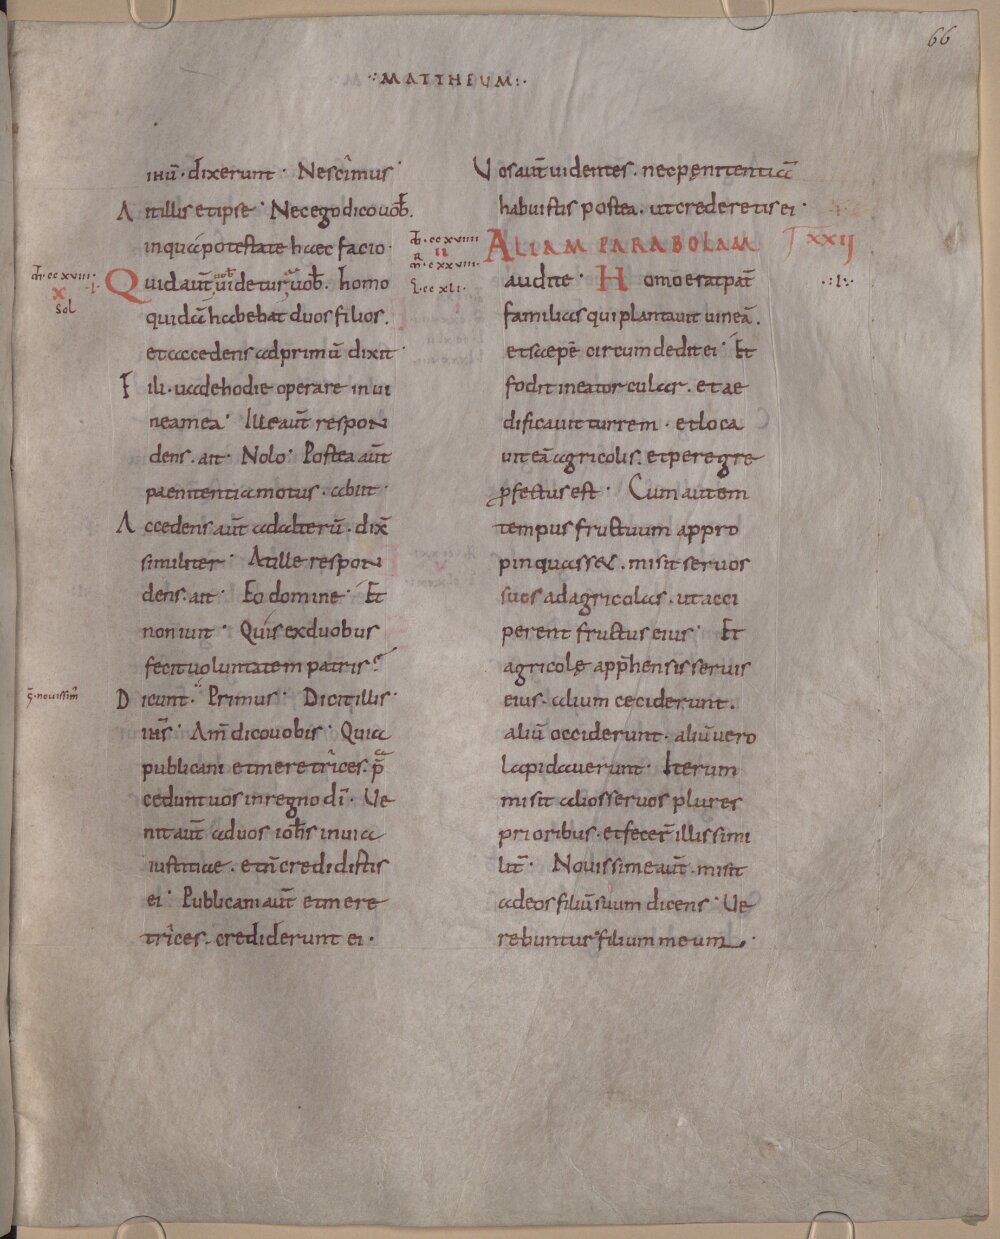 66
·:MATTHEUM:·
ihū· dixerunt· Nescimus·
Aitillis etipse· Necego dico uob̄.
inqua potestate haec facio·
m̄·ccxviii·
X
·I·
Sol
Quid aut̄ uidetur uob̄. homo
quidā habebat duos filios.
et accedens ad primū dixit·
Fili· uade hodie operare in ui
nea mea· Ille aut̄ respon
dens. ait· Nolo· Postea aut̄
paenitentia motus. abiit·
Accedens aut̄ ad alterū· dix̄
similiter· At ille respon
dens. ait· Eo domine· Et
non iuit· Quis ex duobus
fecit uoluntatem patris?
·nouissim'
Dicunt· Primus· Dicit illis·
ihs̄· Am̄ dico uobis· Quia
publicani et meretrices. p̄
cedunt uos in regno dī· Ue
nit aut̄ ad uos ioh̄s in uia
iustitiae. et n̄ credidistis
ei· Publicani aut̄ et mere
trices. crediderunt ei·
Uos aut̄ uidentes. nec penitentiā
habuistis postea. ut crederetis ei·
m̄·ccxviiii
II
m̄·cxxviii·
l·ccxli·
ALIAM PARABOLAM
XXIJ
audite· Homo erat pat̄
·:I:·
familias qui plantauit uineā.
et saepē circumdedit ei· Et
fodit in ea torcular. et ae
dificauit turrem· et loca
uit eā agricolis. et peregre
ꝓfectus est· Cum autem
tempus fructuum appro
pinquasset. misit seruos
suos ad agricolas. ut acci
perent fructus eius· Et
agricolę app̄hensis seruis
eius· alium ceciderunt.
aliū occiderunt· aliū uero
lapidauerunt· Iterum
misit alios seruos plures
prioribus· et fecer̄ illis simi
lit̄· Nouissime aut̄. misit
ad eos filiū suum dicens· Ue
rebuntur filium meum·